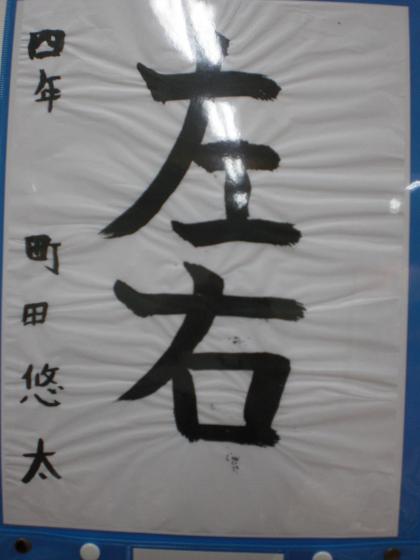 左右
四年 町田悠太